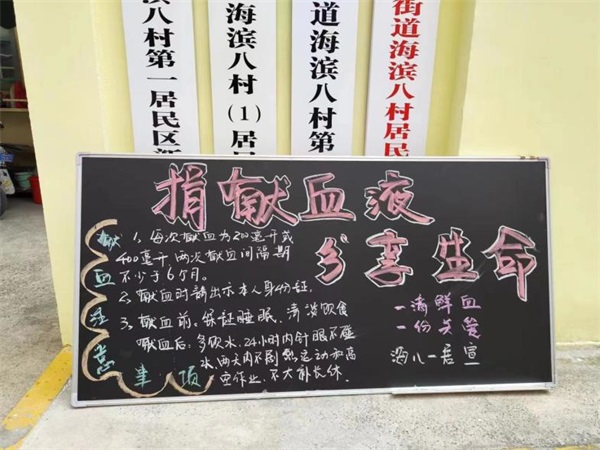 滨八村第一居民区
海滨八村(1)居
道海滨八村第
街道海滨八村居民
捐献血液
分享生命
献血注意事项
1、每次献血为200毫升或
400毫升,两次献血间隔期
不少于6个月。
2、献血时请出示本人身份证。
3、献血前、保证睡眠、清淡饮食
献血后:多饮水、24小时内针眼不碰
水、两天内不剧烈运动和高
空作业、不大补长休。
一滴鲜血
一份关爱
海八一居宣